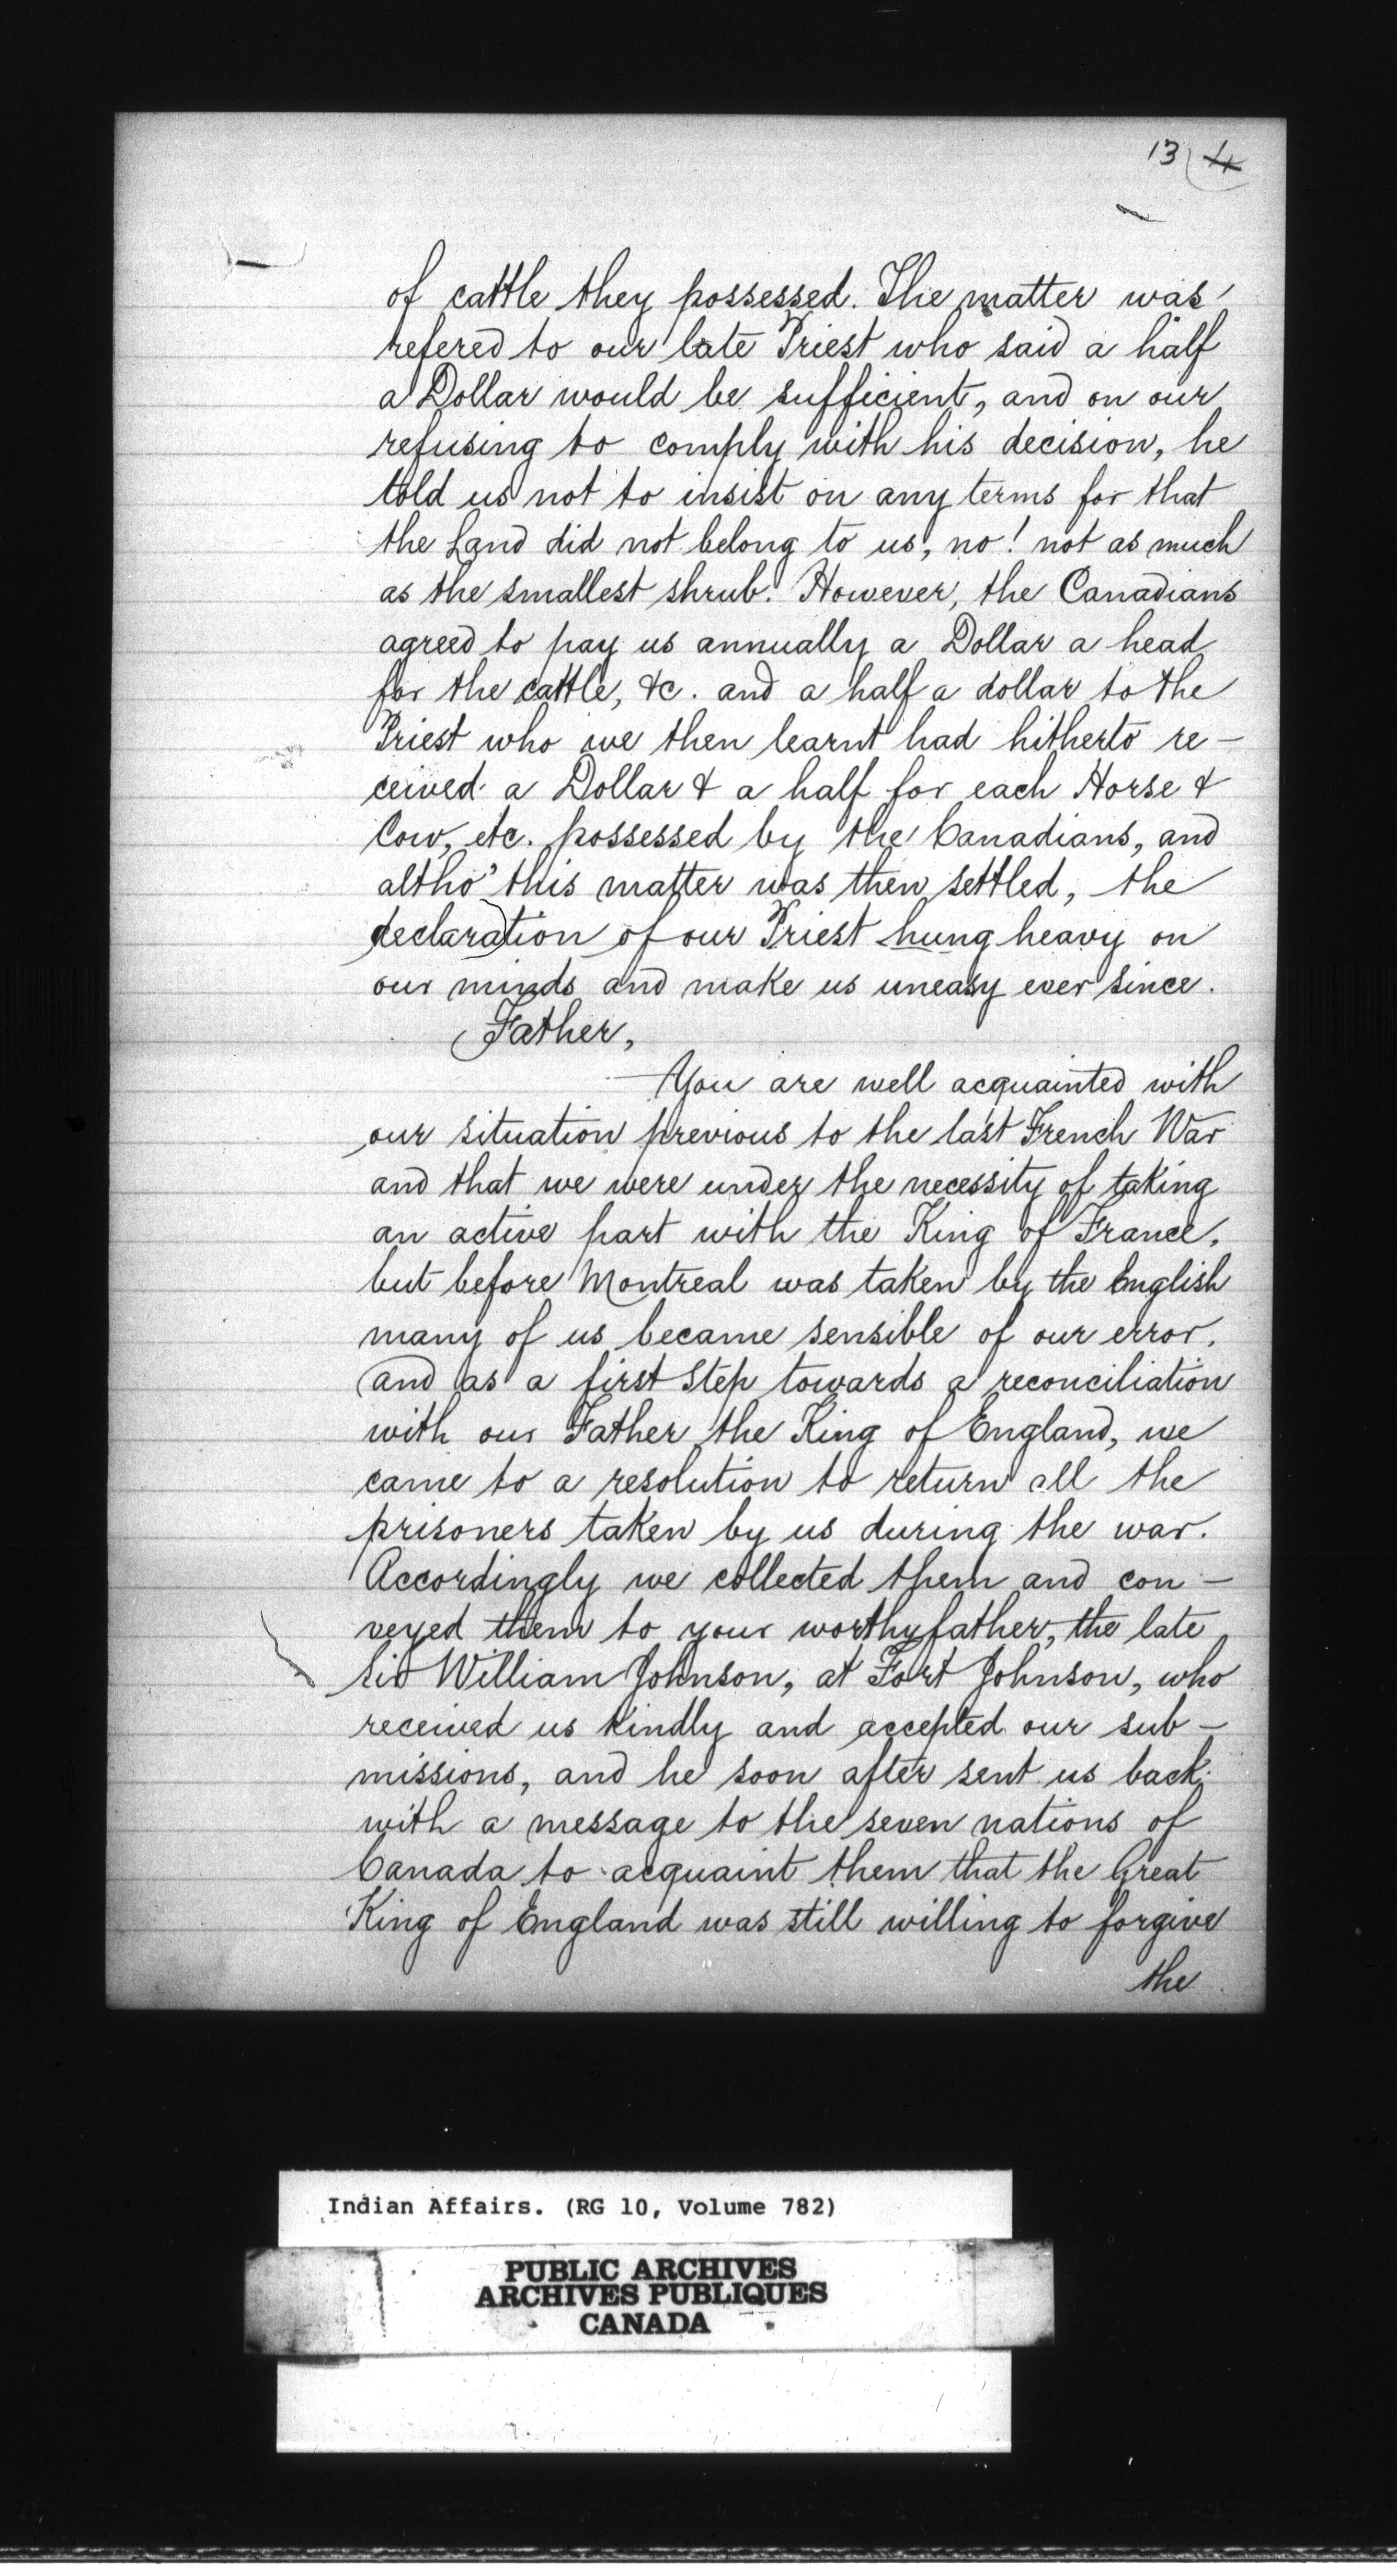 13 4
of cattle they possessed. The matter was
refered to our late Priest who said a half
a Dollar would be sufficient, and on our
refusing to comply with his decision, he
told us not to insist on any terms for that
the Land did not belong to us, no! not as much
as the smallest shrub. However, the Canadians
agreed to pay us annually a Dollar a head
for the cattle, &c. and a half a dollar to the
Priest who we then learnt had hitherto re-
ceived a Dollar & a half for each Horse &
Cow, etc. possessed by the Canadians, and
altho' this matter was then settled, the
declaration of our Priest hung heavy on
our minds and make us uneasy ever since.
Father,
You are well acquainted with
our situation previous to the last French War
and that we were under the necessity of taking
an active part with the King of France,
but before Montreal was taken by the English
many of us became sensible of our error,
and as a first step towards a reconciliation
with our Father the King of England, we
came to a resolution to return all the
prisoners taken by us during the war.
Accordingly we collected them and con-
veyed them to your worthy father, the late
Sir William Johnson, at Fort Johnson, who
received us kindly and accepted our sub-
missions, and he soon after sent us back
with a message to the seven nations of
Canada to acquaint them that the Great
King of England was still willing to forgive
the
Indian Affairs. (RG 10, Volume 782)
PUBLIC ARCHIVES
ARCHIVES PUBLIQUES
CANADA